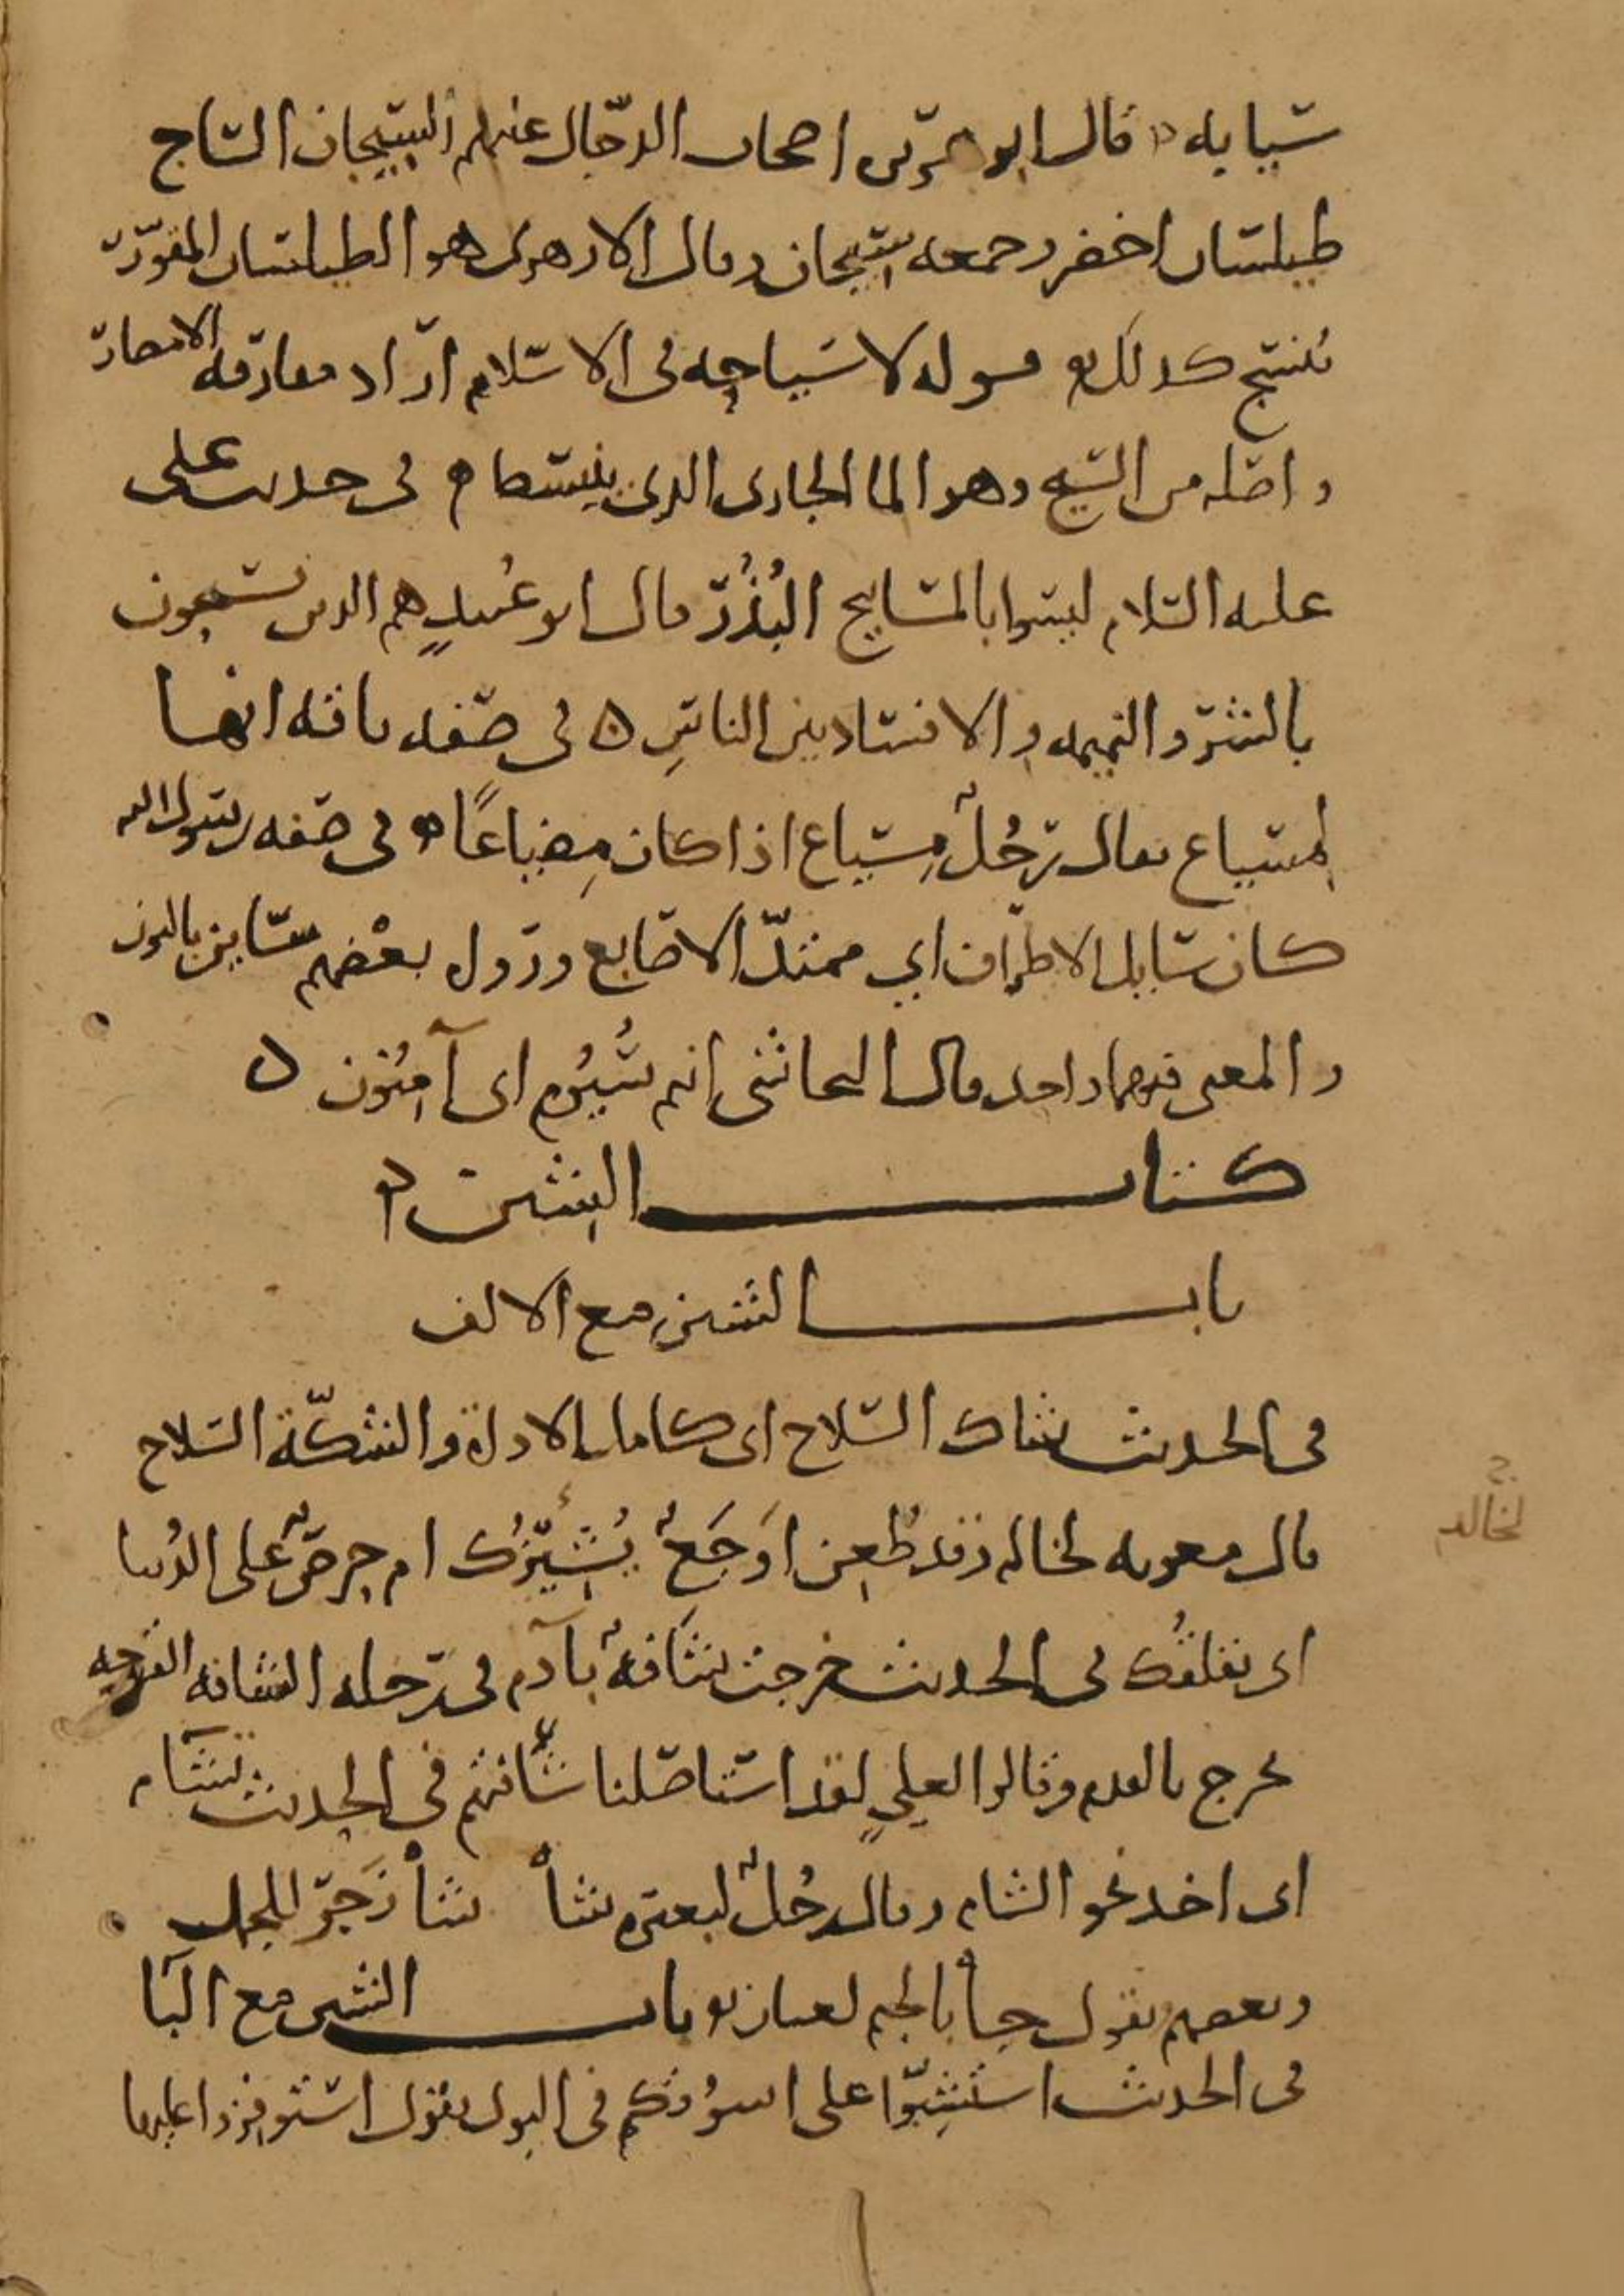 سيابه قال ابو هريرة اصحاب الدجال عليهم السيجان الساج
طيلسان اخضر وجمعه سيجان وقال الازهري هو الطيلسان المقور
ينسج كذلك قوله لا سياحه في الاسلام اراد مفارقه الامصار
واصله من السيح وهو الما الجاري الذي ينبسط في حديث على
عليه السلام ليسوا بالمساييح البُذُر قال ابو عُبيدٍ هم الذين يسيحون
بالشر والنميمه والافساد بين الناسِ في صفه ناقه انها
لمسياع يقال رجُلٌ مِسياع اذا كان مِضياعًا في صفه رسول الله
كان سايل الاطراف اي ممتدّ الاصابع ورَوَاه بعْضهم ساين بالنون
والمعنى فيهما واحد قال النجاشى انتم سُيُوم اى آمِنُون
كتاب الشين
باب الشين مع الالف
في الحديث شاك السّلاح اى كامل الاداة والشكّة السّلاح
قال معويه لخاله وقد طُعِن اَوَجَعٌ يُشْئِزُك ام حِرصٌ على الدُنيا
اى يقلقُك في الحديث خرجت شَافةٌ بآدم في رجله الشافه القرحه
تخرج بالقدم وقالوا لعليٍ لقد استاصلنا شأفتهم في الحديث تشأم
اى اخذ نحو الشام وقال رجُلٌ لبعيره شأْ شأْ زَجَر للجمل
وبعضهم يقول جأْ بالجيم لغتان باب الشين مع البَا
في الحديث استشِبّوا على اسوُقكم في البول يقول استوفزوا عليها
لخالد